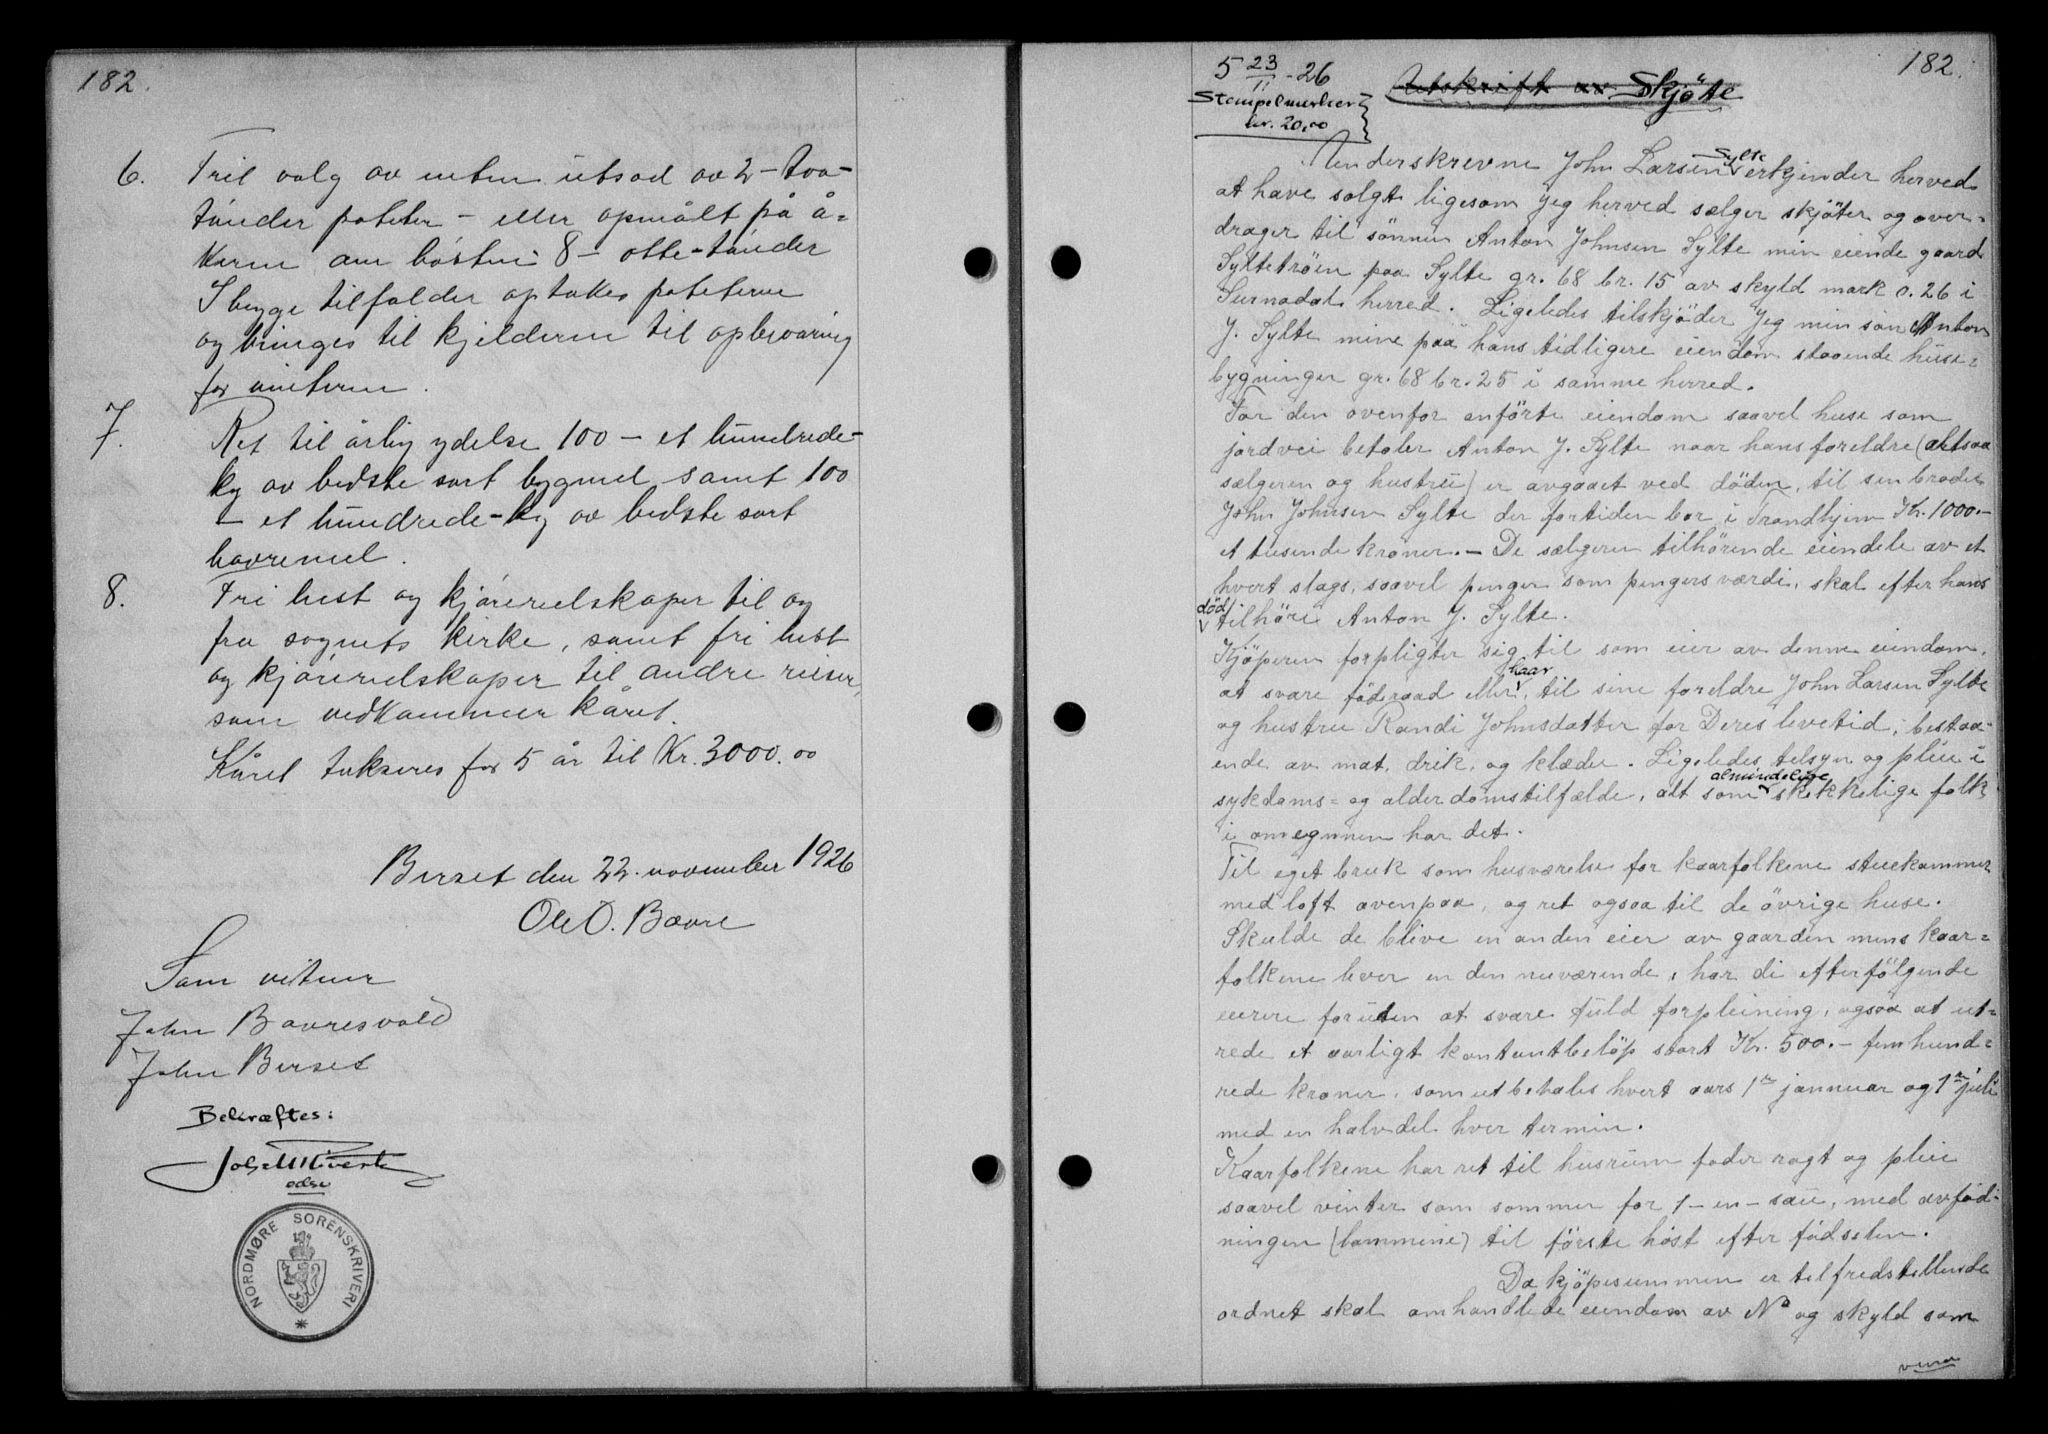 182.
6. Frit valg av enten utsæd av 2 – too –
tønder poteter – eller opmålt på å=
keren om høsten 8 – otte – tønder
I begge tilfælder optakes poteterne
og bringes til kjelderne til opbevaring
for vinteren.
7. Ret til årlig ydelse 100 – et hundrede –
kg av bedste sort bygmel samt 100
– et hundrede – kg av bedste sort
havremel.
8. Fri hest og kjøreredskaper til og
fra sognets kirke, samt fri hest
og kjøreredskaper til andre reiser,
som vedkommer kåret.
Kåret takseres for 5 år til Kr. 3000.00
Bævret den 22. november 1926
Ole O. Bævre
Som vitner
John Bævresvold
John Bævret
Bekræftes:
edsv
NORDMØRE SORENSKRIVERI
182.
5 23/11 - 26
Stempelmerker
kr. 20,00
Utskrift av Skjöte
Underskrevne John Larsen Sylte erkjender herved
at have solgt ligesom jeg herved sælger skjöter og over=
drager til sönnen Anton Johnsen Sylte min eiende gaard
Syltetröen paa Sylte gr. 68 br. 15 av skyld mark 0.26 i
Surnadal herred. Ligeledes tilskjöder jeg min sön Anton
J. Sylte mine paa hans tidligere eiendom staaende huse=
bygninger gr. 68 br. 25 i samme herred.
For den ovenfor anförte eiendom saavel huse som
jordvei betaler Anton J. Sylte naar hans foreldre (altsaa
sælgeren og hustru) er avgaaet ved döden, til sin broder
John Johnsen Sylte der fortiden bor i Trondhjem Kr. 1000.–
et tusende kroner. – De sælgeren tilhörende eiendele av et
hvert slags, saavel penger som pengers værdi, skal efter hans
död tilhöre Anton J. Sylte.
Kjöperen forpligter sig til som eier av denne eiendom,
at svare föderaad eller kaar, til sine foreldre John Larsen Sylte
og hustru Randi Johnsdatter for Deres levetid, bestaa=
ende av mat, drik, og klæder. Ligeledes tilsyn og pleie i
sykdoms= og alderdomstilfælde, alt som almindelige skikkelige folk
i omegnen har det.
Til eget bruk som husværelse for kaarfolkene stuekammer
med loft ovenpaa, og ret ogsaa til de övrige huse.
Skulde de blive en anden eier av gaarden mens kaar=
folkene lever en den nuværende, har de efterfölgende
eiere foruten at svare fuld forpleining, ogsaa at ut=
rede et aarligt kontantbelöp stort Kr. 500.– fem hund=
rede kroner, som utbetales hvert aars 1ste jannuar og 1ste juli
med en halvdel hver termin.
Kaarfolkene har ret til husrum foder rögt og pleie
saavel vinter som sommer for 1 – en – sau, med avföd=
ningen (lammene) til förste höst efter födselen.
Da kjöpesummen er tilfredstillende
ordnet skal omhandlede eiendom av No og skyld som